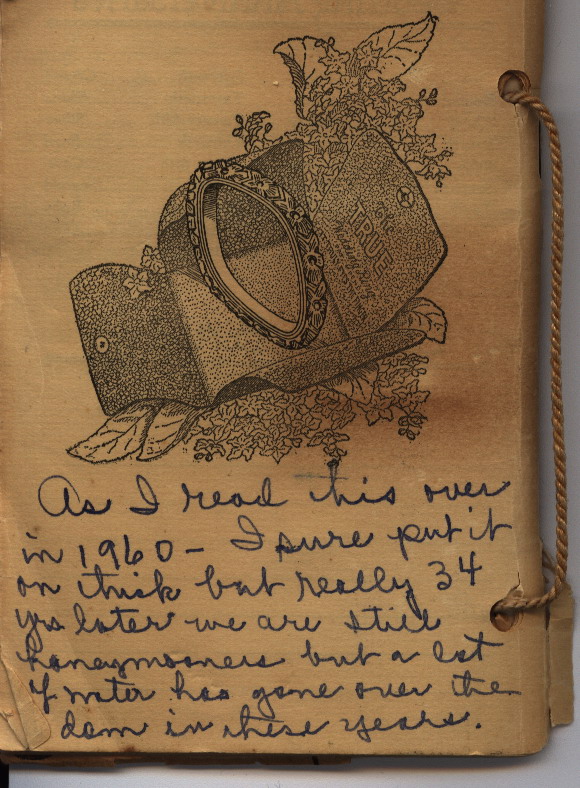 TRUE
As I read this over
in 1960 - I sure put it
on thick but really 34
yrs later we are still
honeymooners but a lot
of water has gone over the
dam in these years.